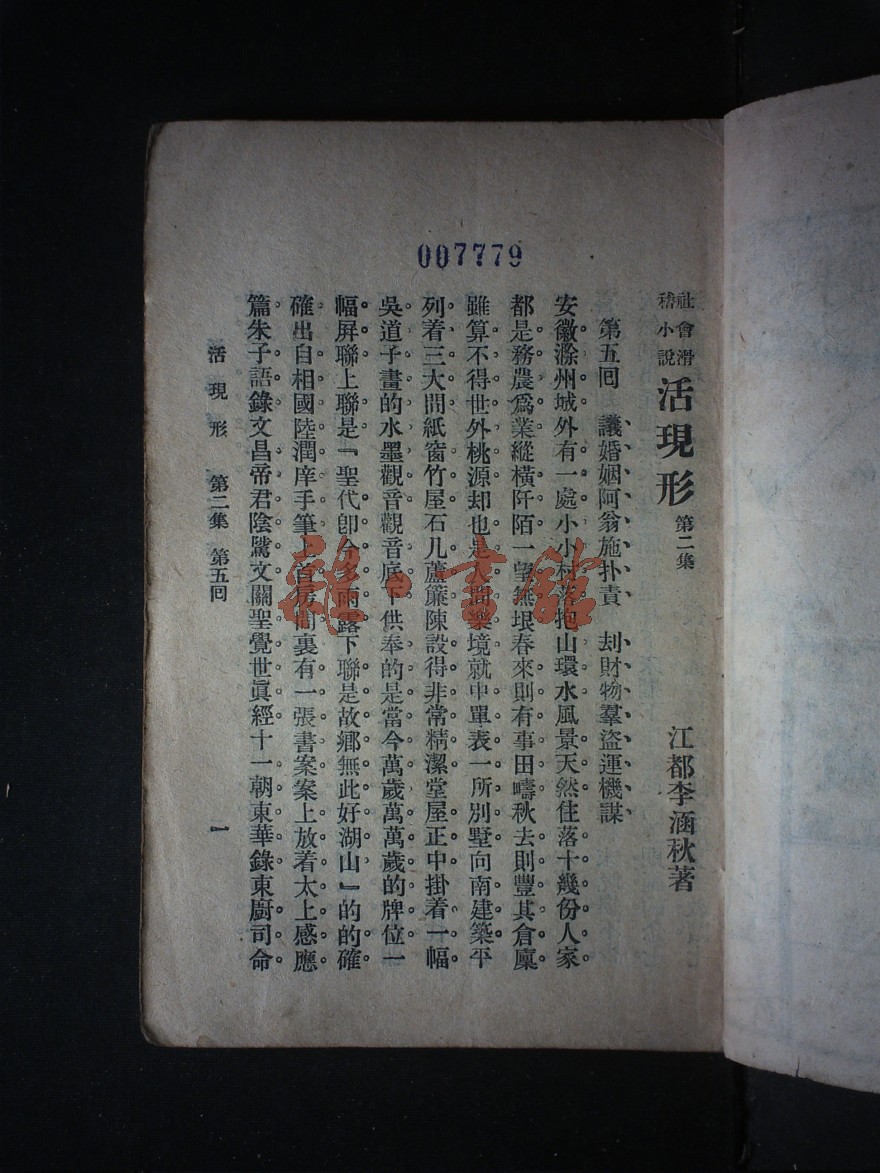 007779
社會滑稽小說 活現形 第二集 江都李涵秋著
第五回 議婚姻阿翁施扑責 刦財物羣盜運機謀
安徽滁州城外有一處小小村落抱山環水風景天然住落十幾份人家
都是務農爲業縱橫阡陌一望無垠春來則有事田疇秋去則豐其倉廩
雖算不得世外桃源却也是人間樂境就中單表一所別墅向南建築平
列着三大間紙窗竹屋石几蘆簾陳設得非常精潔堂屋正中掛着一幅
吳道子畫的水墨觀音觀音底下供奉的是當今萬歲萬萬歲的牌位一
幅屏聯上聯是「聖代卽今多雨露下聯是故鄉無此好湖山」的的確
確出自相國陸潤庠手筆上首房間裏有一張書案案上放着太上感應
篇朱子語錄文昌帝君陰騭文關聖覺世眞經十一朝東華錄東廚司命
活現形 第二集 第五回 一